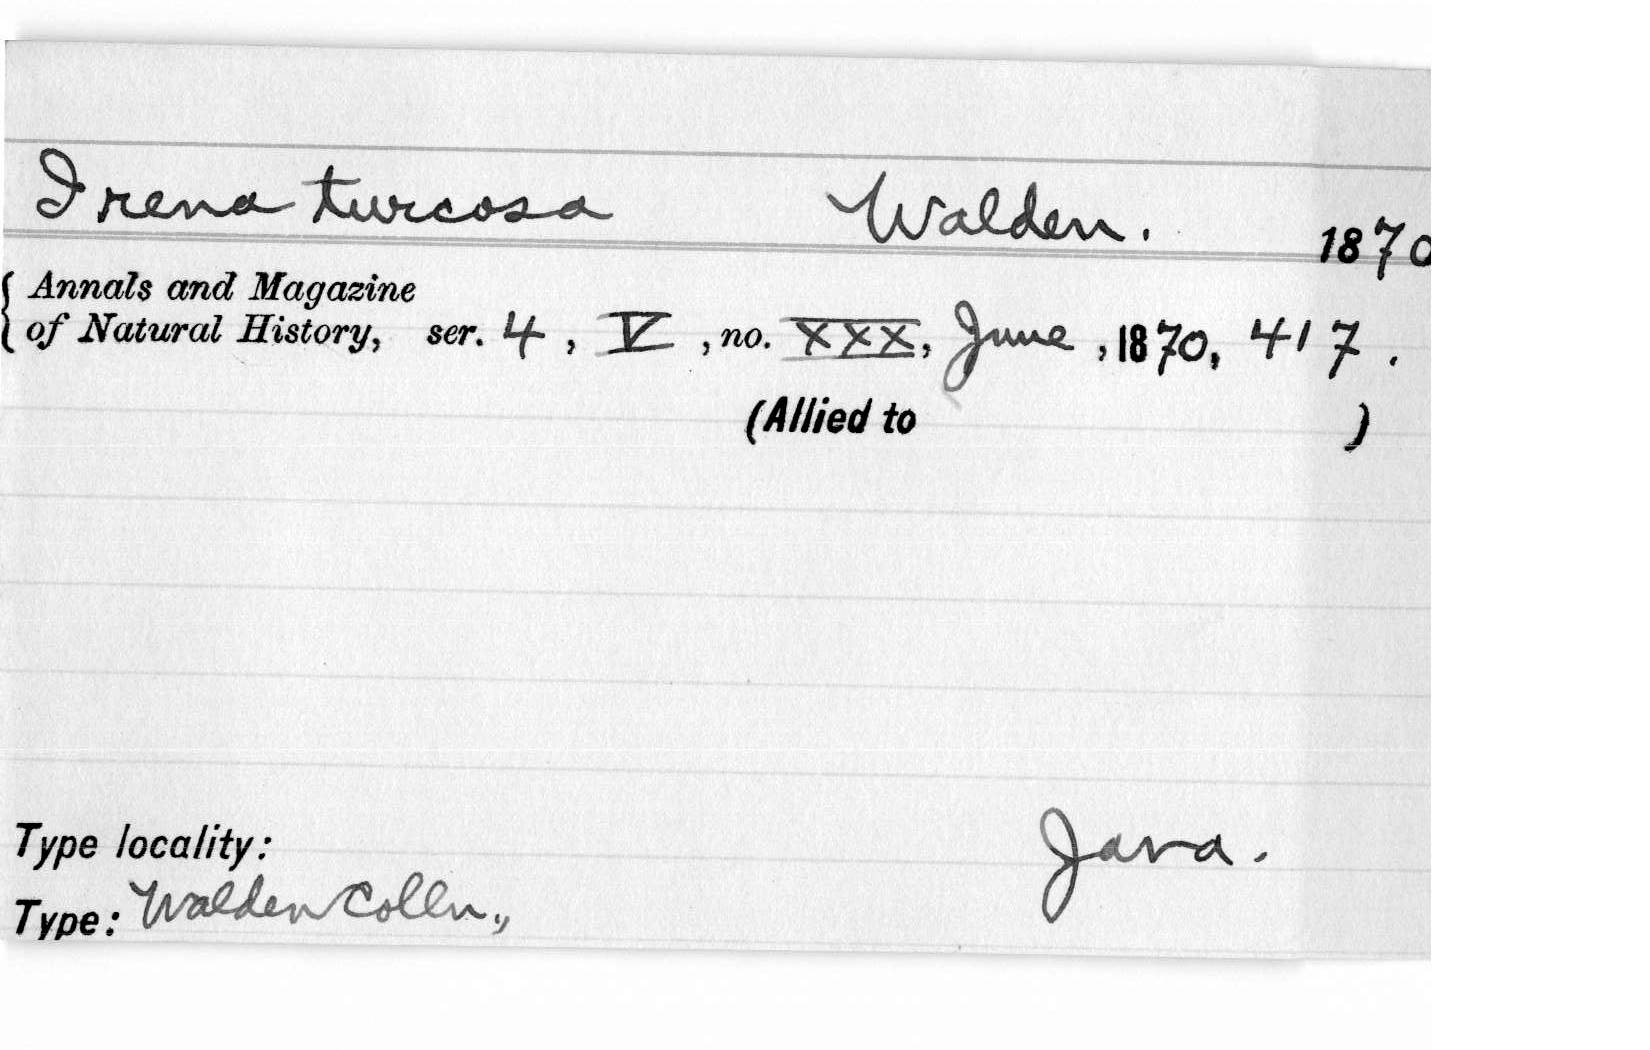 Irena turcosa Walden. 1870
Annals and Magazine
of Natural History, ser. 4, V, no. XXX, June, 1870, 417.
(Allied to )
Type locality: Java.
Type: Walden Colln.,